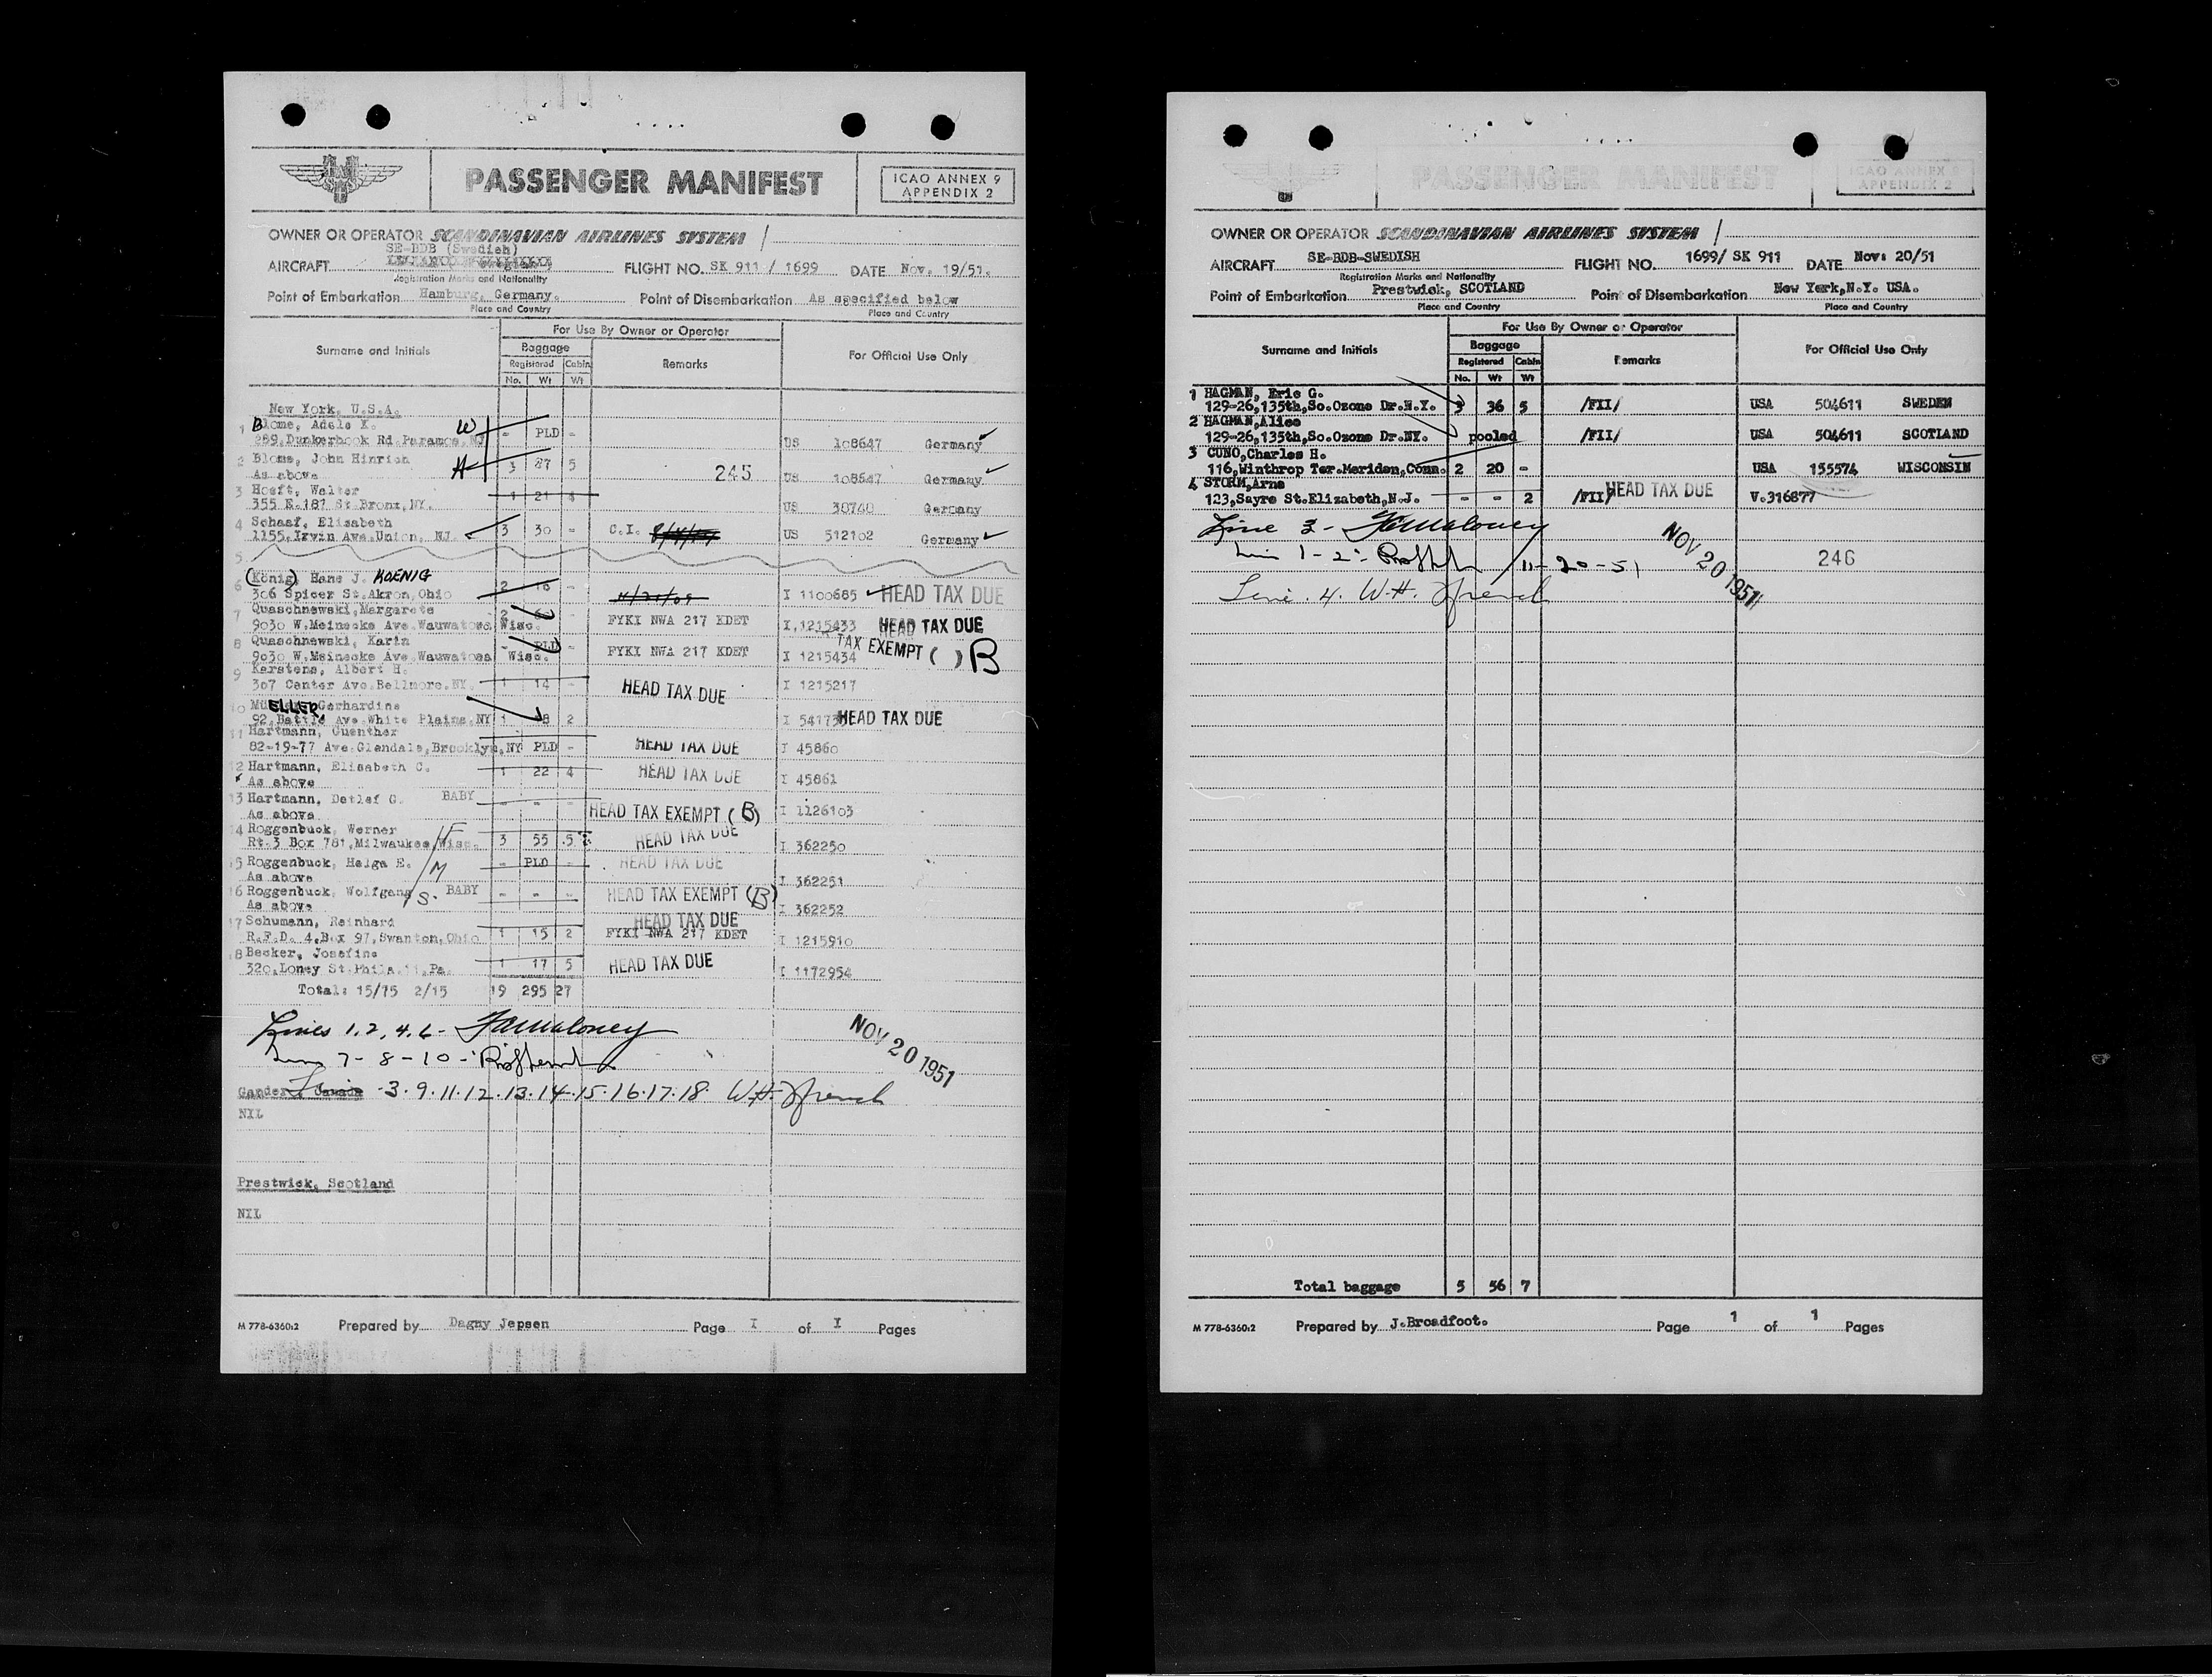 PASSENGER MANIFEST
ICAO ANNEX 9
APPENDIX 2
OWNER OR OPERATOR SCANDINAVIAN AIRLINES SYSTEM /
SE-BDB (Swedish)
AIRCRAFT FLIGHT NO. SK 911 / 1699 DATE Nov. 19/51.
Registration Marks and Nationality
Point of Embarkation Hamburg, Germany. Point of Disembarkation As specified below
Place and Country Place and Country
For Use By Owner or Operator
Surname and Initials Baggage Remarks For Official Use Only
Registered Cabin
No. Wt Wt
New York, U.S.A.
1 Blome, Adele K. W
289,Dunkerhook Rd.Paramos,NJ - PLD - US 108647 Germany
2 Blome, John Hinrich H 3 27 5 245
As above US 108647 Germany
3 Hoeft, Walter 1 21 4
355 E.187 St Bronx,NY. US 38740 Germany
4 Schaaf, Elisabeth
1155,Irvin Ave.Union, NJ. 3 30 - C.I. US 512102 Germany
5
6 (König), Hans J. KOENIG
306 Spicer St.Akron,Ohio 2 16 - I 1100685 HEAD TAX DUE
7 Quaschnewski,Margarete
9030 W.Meinecke Ave.Wauwatosa Wisc. 2 - FYKI NWA 217 KDET I 1215433 HEAD TAX DUE
8 Quaschnewski, Karin - PLD -
9030 W.Meinecke Ave.Wauwatosa Wisc. FYKI NWA 217 KDET I 1215434 TAX EXEMPT ( ) B
9 Kerstens, Albert H.
307 Center Ave.Bellmore.NY. 1 14 - HEAD TAX DUE I 1215217
10 MüELLER, Gerhardine
92,Battle Ave.White Plains,NY 1 18 2 HEAD TAX DUE
11 Hartmann, Guenther
82-19-77 Ave.Glendale,Brooklyn,NY PLD - HEAD TAX DUE I 45860
12 Hartmann, Elisabeth C. 1 22 4 HEAD TAX DUE
As above I 45861
13 Hartmann, Detlef G. BABY - - -
As above HEAD TAX EXEMPT (B) I 1126103
14 Roggenbuck, Werner /F
Rt.3 Box 781,Milwaukee,Wisc. 3 55 .5 HEAD TAX DUE I 362250
15 Roggenbuck, Helga E. /M - PLD - HEAD TAX DUE
As above I 362251
16 Roggenbuck, Wolfgang /S. BABY - - - HEAD TAX EXEMPT (B)
As above I 362252
17 Schumann, Reinhard HEAD TAX DUE
R.F.D. 4,Box 97,Swanton,Ohio 1 15 2 FYKI NWA 217 KDET I 1215910
18 Becker, Josefine
320,Loney St.Phila.11,Pa. 1 17 5 HEAD TAX DUE I 1172954
Total: 15/75 2/15 19 295 27
Lines 1,2,4,6 - Maloney
NOV 20 1951
7 - 8 - 10 -
Gander, Canada 3.9.11.12.13.14.15.16.17.18 W.H. French
NIL
Prestwick, Scotland
NIL
M 778-6360:2 Prepared by Dagny Jepsen Page I of I Pages
PASSENGER MANIFEST
ICAO ANNEX 9
APPENDIX 2
OWNER OR OPERATOR SCANDINAVIAN AIRLINES SYSTEM /
AIRCRAFT SE-BDB-SWEDISH FLIGHT NO. 1699/ SK 911 DATE Nov: 20/51
Registration Marks and Nationality
Point of Embarkation Prestwick, SCOTLAND Point of Disembarkation New York,N.Y. USA.
Place and Country Place and Country
For Use By Owner or Operator
Surname and Initials Baggage Remarks For Official Use Only
Registered Cabin
No. Wt Wt
1 HAGMAN, Eric G.
129-26,135th,So.Ozone Dr.N.Y. 3 36 5 /FII/ USA 504611 SWEDEN
2 HAGMAN,Alice
129-26,135th,So.Ozone Dr.NY. pooled /FII/ USA 504611 SCOTLAND
3 CUNO,Charles H.
116,Winthrop Ter.Meriden,Conn. 2 20 - USA 155574 WISCONSIN
4 STORM,Arne
123,Sayre St.Elizabeth,N.J. - - 2 /FII/ HEAD TAX DUE V.316877
Line 3 - Maloney
Line 1-2 - 11-20-51 NOV 20 1951 246
Line . 4. W.H. French
Total baggage 5 56 7
M 778-6360:2 Prepared by J.Broadfoot. Page 1 of 1 Pages